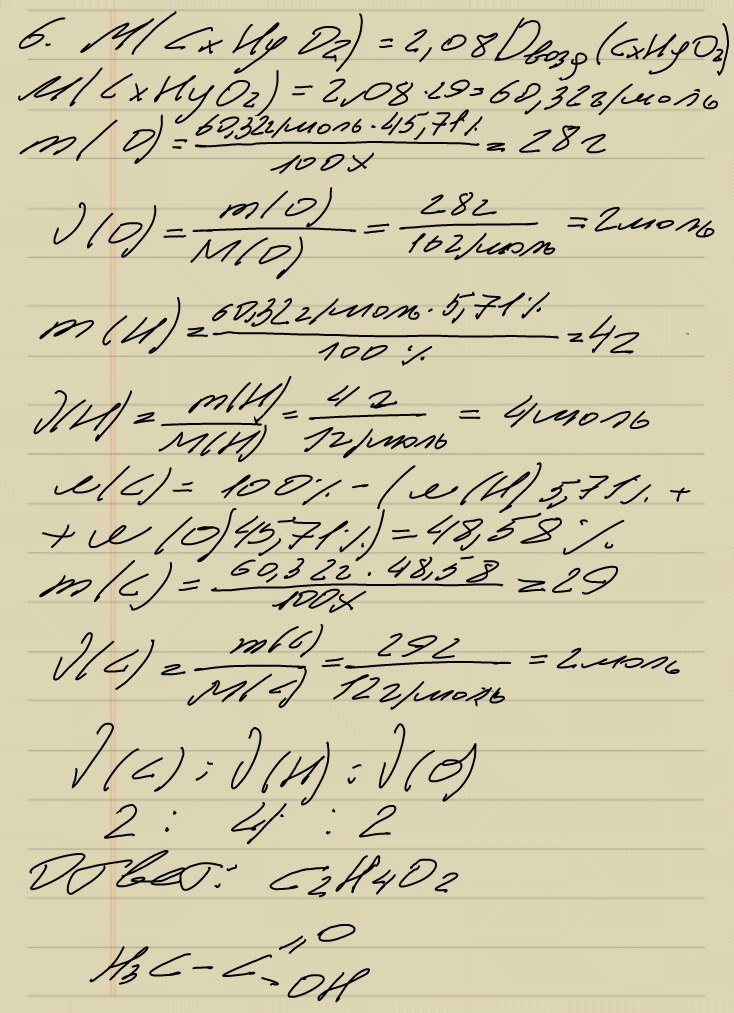 6. M(CxHyO2) = 2,08 Dвозд(CxHyO2)
M(CxHyO2) = 2,08·29=60,32г/моль
m(O)= 60,32г/моль·45,71% / 100% = 28г
ν(O)= m(O) / M(O) = 28г / 16г/моль =2моль
m(H)= 60,32г/моль·5,71% / 100% =4г
ν(H)= m(H) / M(H) = 4г / 1г/моль = 4моль
ω(C)= 100%-(ω(H)5,71%+
+ω(O)45,71%)=48,58%
m(C)= 60,322г·48,58 / 100% =29
ν(C)= m(C) / M(C) = 29г / 12г/моль =2моль
ν(C) : ν(H) : ν(O)
2 : 4 : 2
Ответ: C2H4O2
=O
H3C-C
-OH